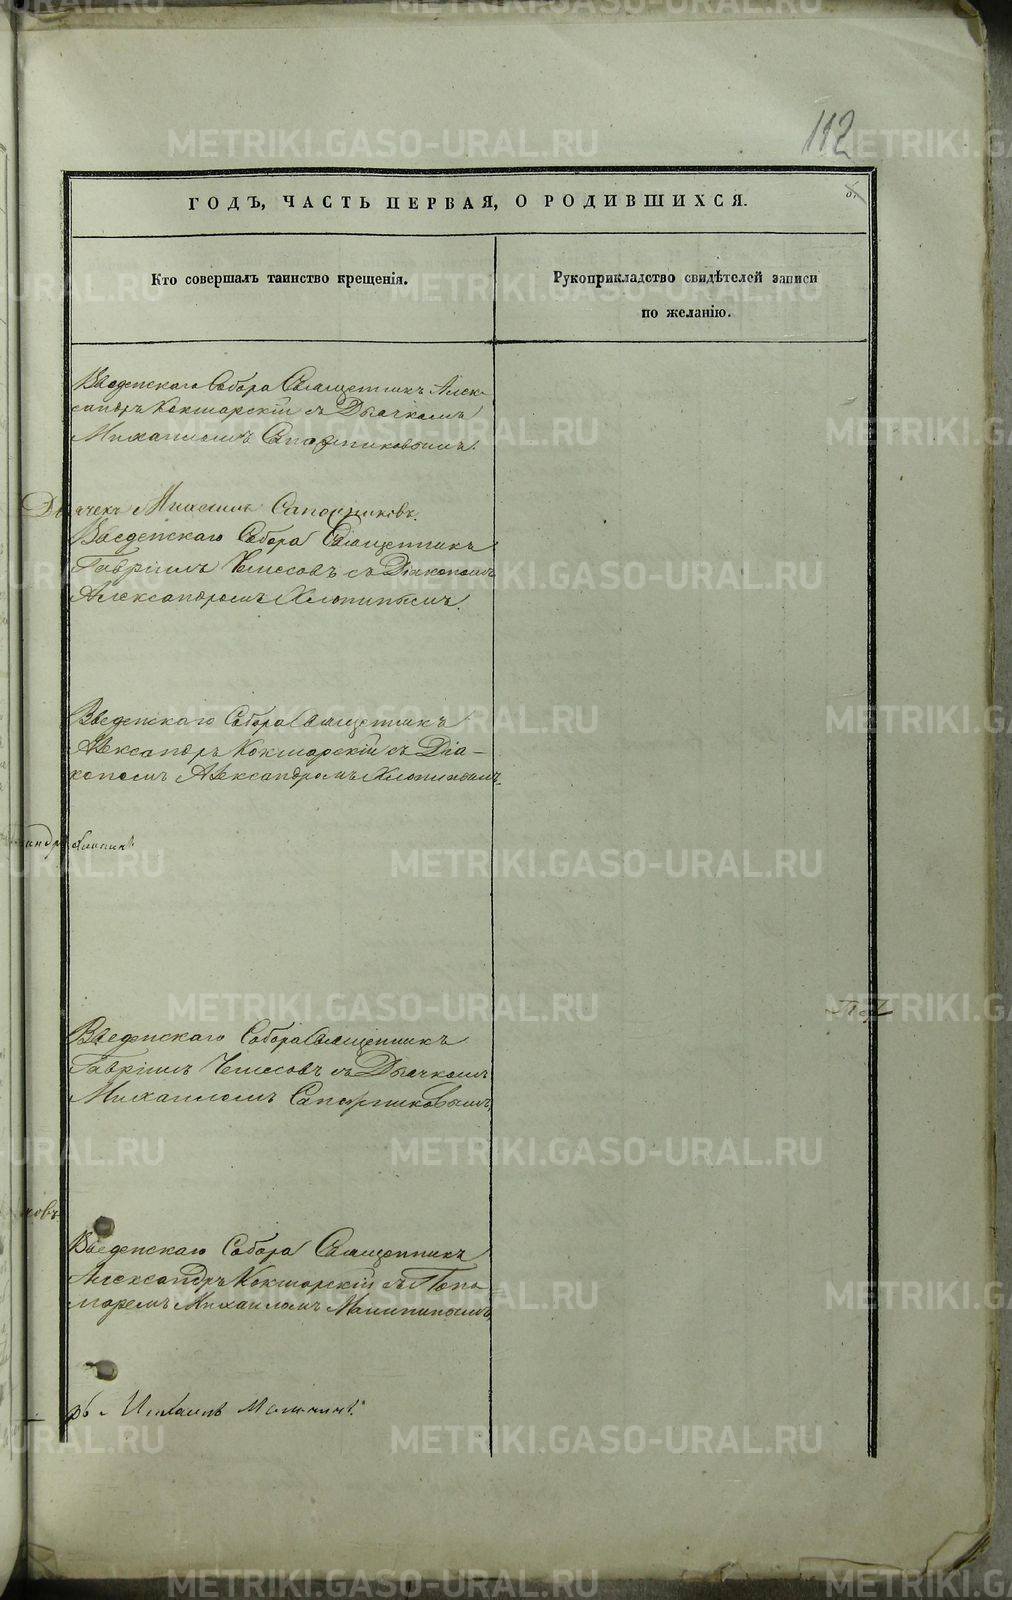 METRIKI.GASO-URAL.RU
112
ГОДЪ, ЧАСТЬ ПЕРВАЯ, О РОДИВШИХСЯ.
Кто совершалъ таинство крещенія.
Рукоприкладство свидѣтелей записи
по желанію.
Введенскаго Собора Священникъ Алек-
сандръ Кокшарскій съ Дьячкомъ
Михаиломъ Сапожниковымъ.
Дьячекъ Михаилъ Сапожниковъ.
Введенскаго Собора Священникъ
Гавріилъ Чемесовъ съ Діакономъ
Александромъ Хлопинымъ.
Введенскаго Собора Священникъ
Александръ Кокшарскій съ Діа-
кономъ Александромъ Хлопинымъ
Хлопинъ
Введенскаго Собора Священникъ
Гавріилъ Чемесовъ съ Дьячкомъ
Михаиломъ Сапожниковымъ
ковъ
Введенскаго Собора Священникъ
Александръ Кокшарскій съ Поно-
маремъ Михаиломъ Малининымъ
рь Михаилъ Малининъ.